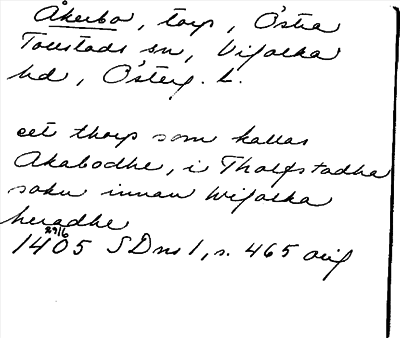 Åkerbo, torp, Östra
Tollstads sn, Vifolka
hd, Österg. l.
eet thorp som kallas
Akabodhe, i Tholfstadha
sokn innan Wifolka
heradhe
1405 29/6 SDns 1, s. 465 orig